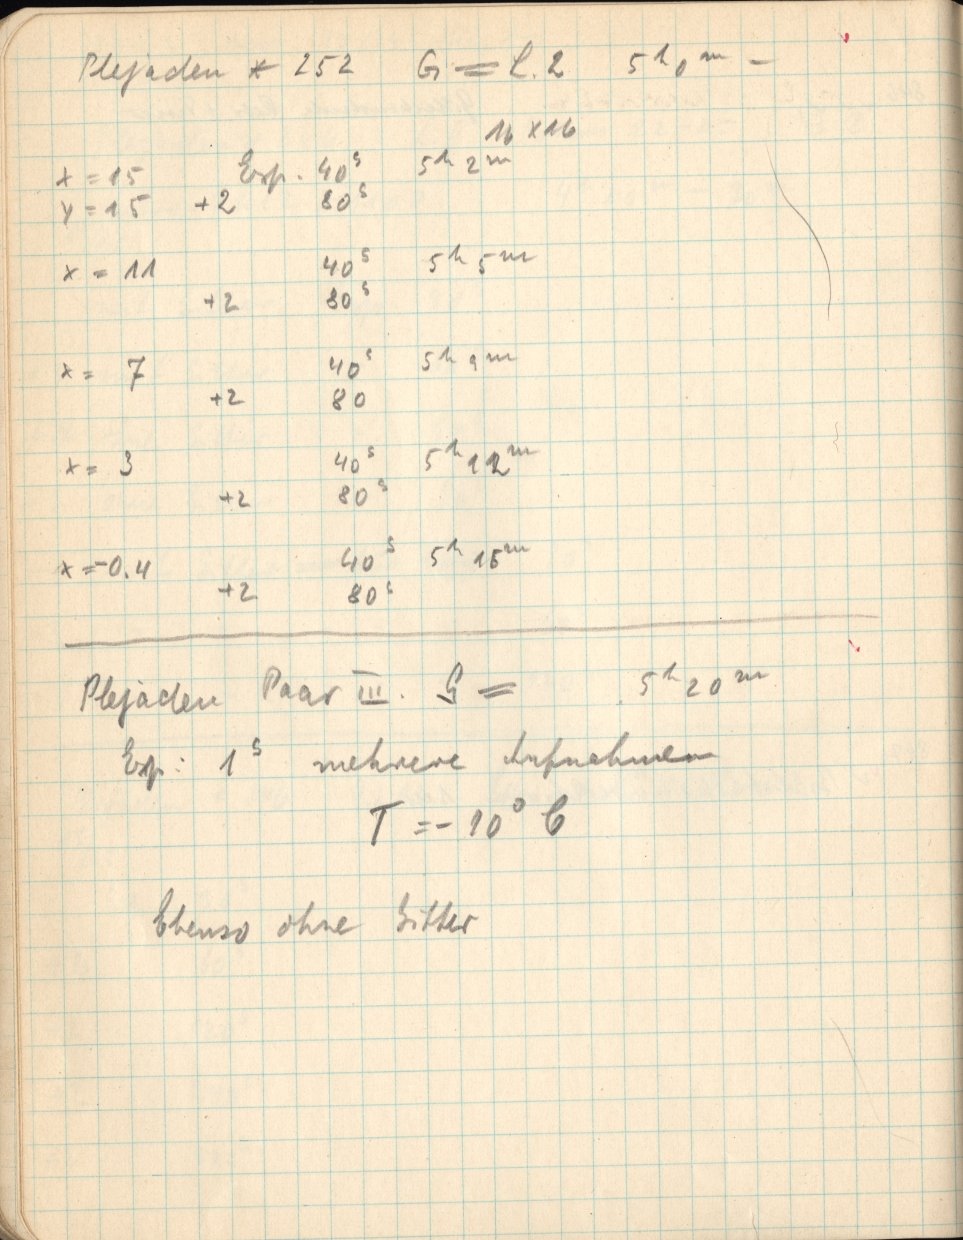 Plejaden * 252 G = L.2 5ʰ0ᵐ –
16 x 16
x = 15 Exp. 40ˢ 5ʰ 2ᵐ
y = 15 +2 80ˢ
x = 11 40ˢ 5ʰ 5ᵐ
+2 80ˢ
x = 7 40ˢ 5ʰ 9ᵐ
+2 80
x = 3 40ˢ 5ʰ 12ᵐ
+2 80ˢ
x = -0.4 40ˢ 5ʰ 15ᵐ
+2 80ˢ
Plejaden Paar III. G = 5ʰ 20ᵐ
Exp: 1ˢ mehrere Aufnahmen
T = - 10° C
Ebenso ohne Gitter